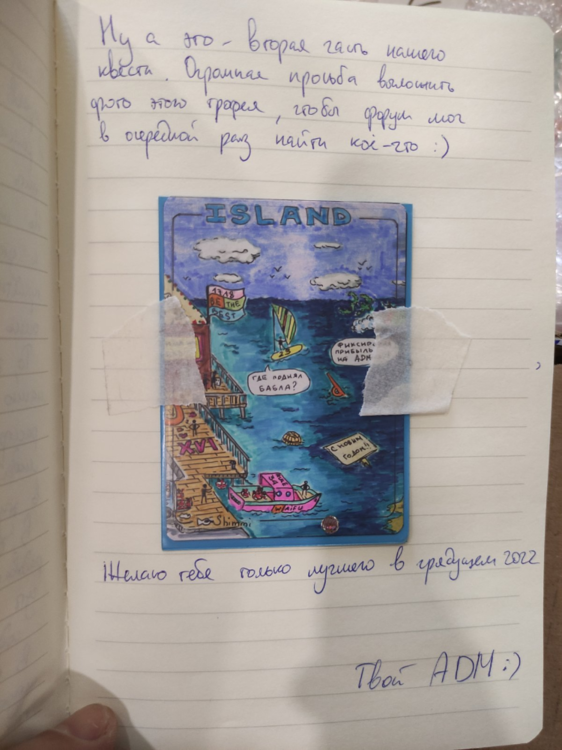 Ну а это - вторая часть нашего
квеста. Огромная просьба выложить
фото этого трофея, чтобы форум мог
в очередной раз найти кое-что :)
ISLAND
BE THE
BEST
ФИКСИРУ
ПРИБЫЛЬ
НА ADM
ГДЕ ПОДНЯЛ
БАБЛА?
С НОВЫМ
ГОДОМ!
Shimmi
Желаю тебе только лучшего в грядущем 2022
Твой ADM :)